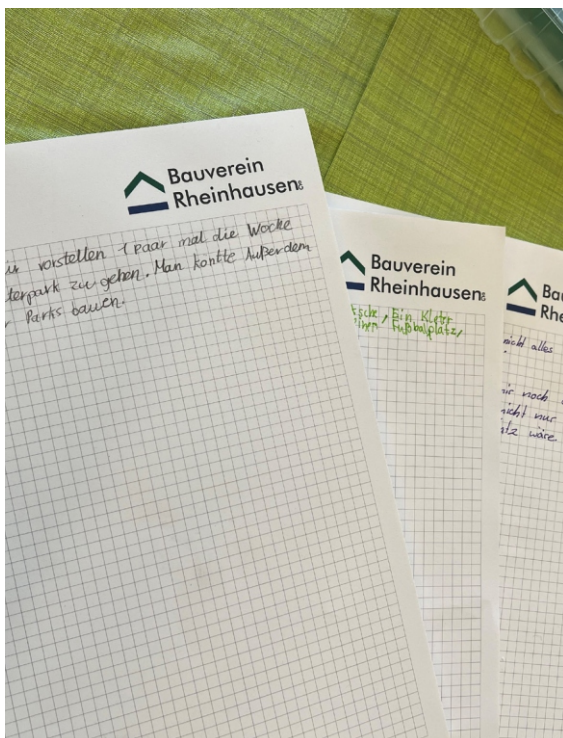 Bauverein
Rheinhausen eG
vorstellen 1 Paar mal die Woche
terpark zu gehen. Man kontte Außerdem
Parks bauen.
Bauverein
Rheinhausen eG
tsche, Ein Klettr
iner Fußballplatz,
Bau
Rhe
nicht alles
ir noch
nicht nur
tz wäre